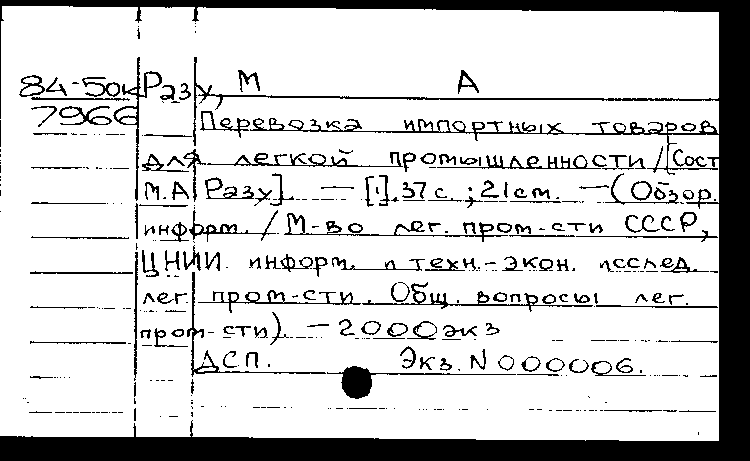 84-50к Разу, М А
7966 Перевозка импортных товаров
для легкой промышленности / [Сост
М.А Разу]. — [1], 37 с. ; 21 см. — (Обзор.
информ. / М-во лег. пром-сти СССР,
ЦНИИ информ. и техн.-экон. исслед.
лег. пром-сти. Общ. вопросы лег.
пром-сти). — 2000 экз
ДСП. Экз. N 000006.